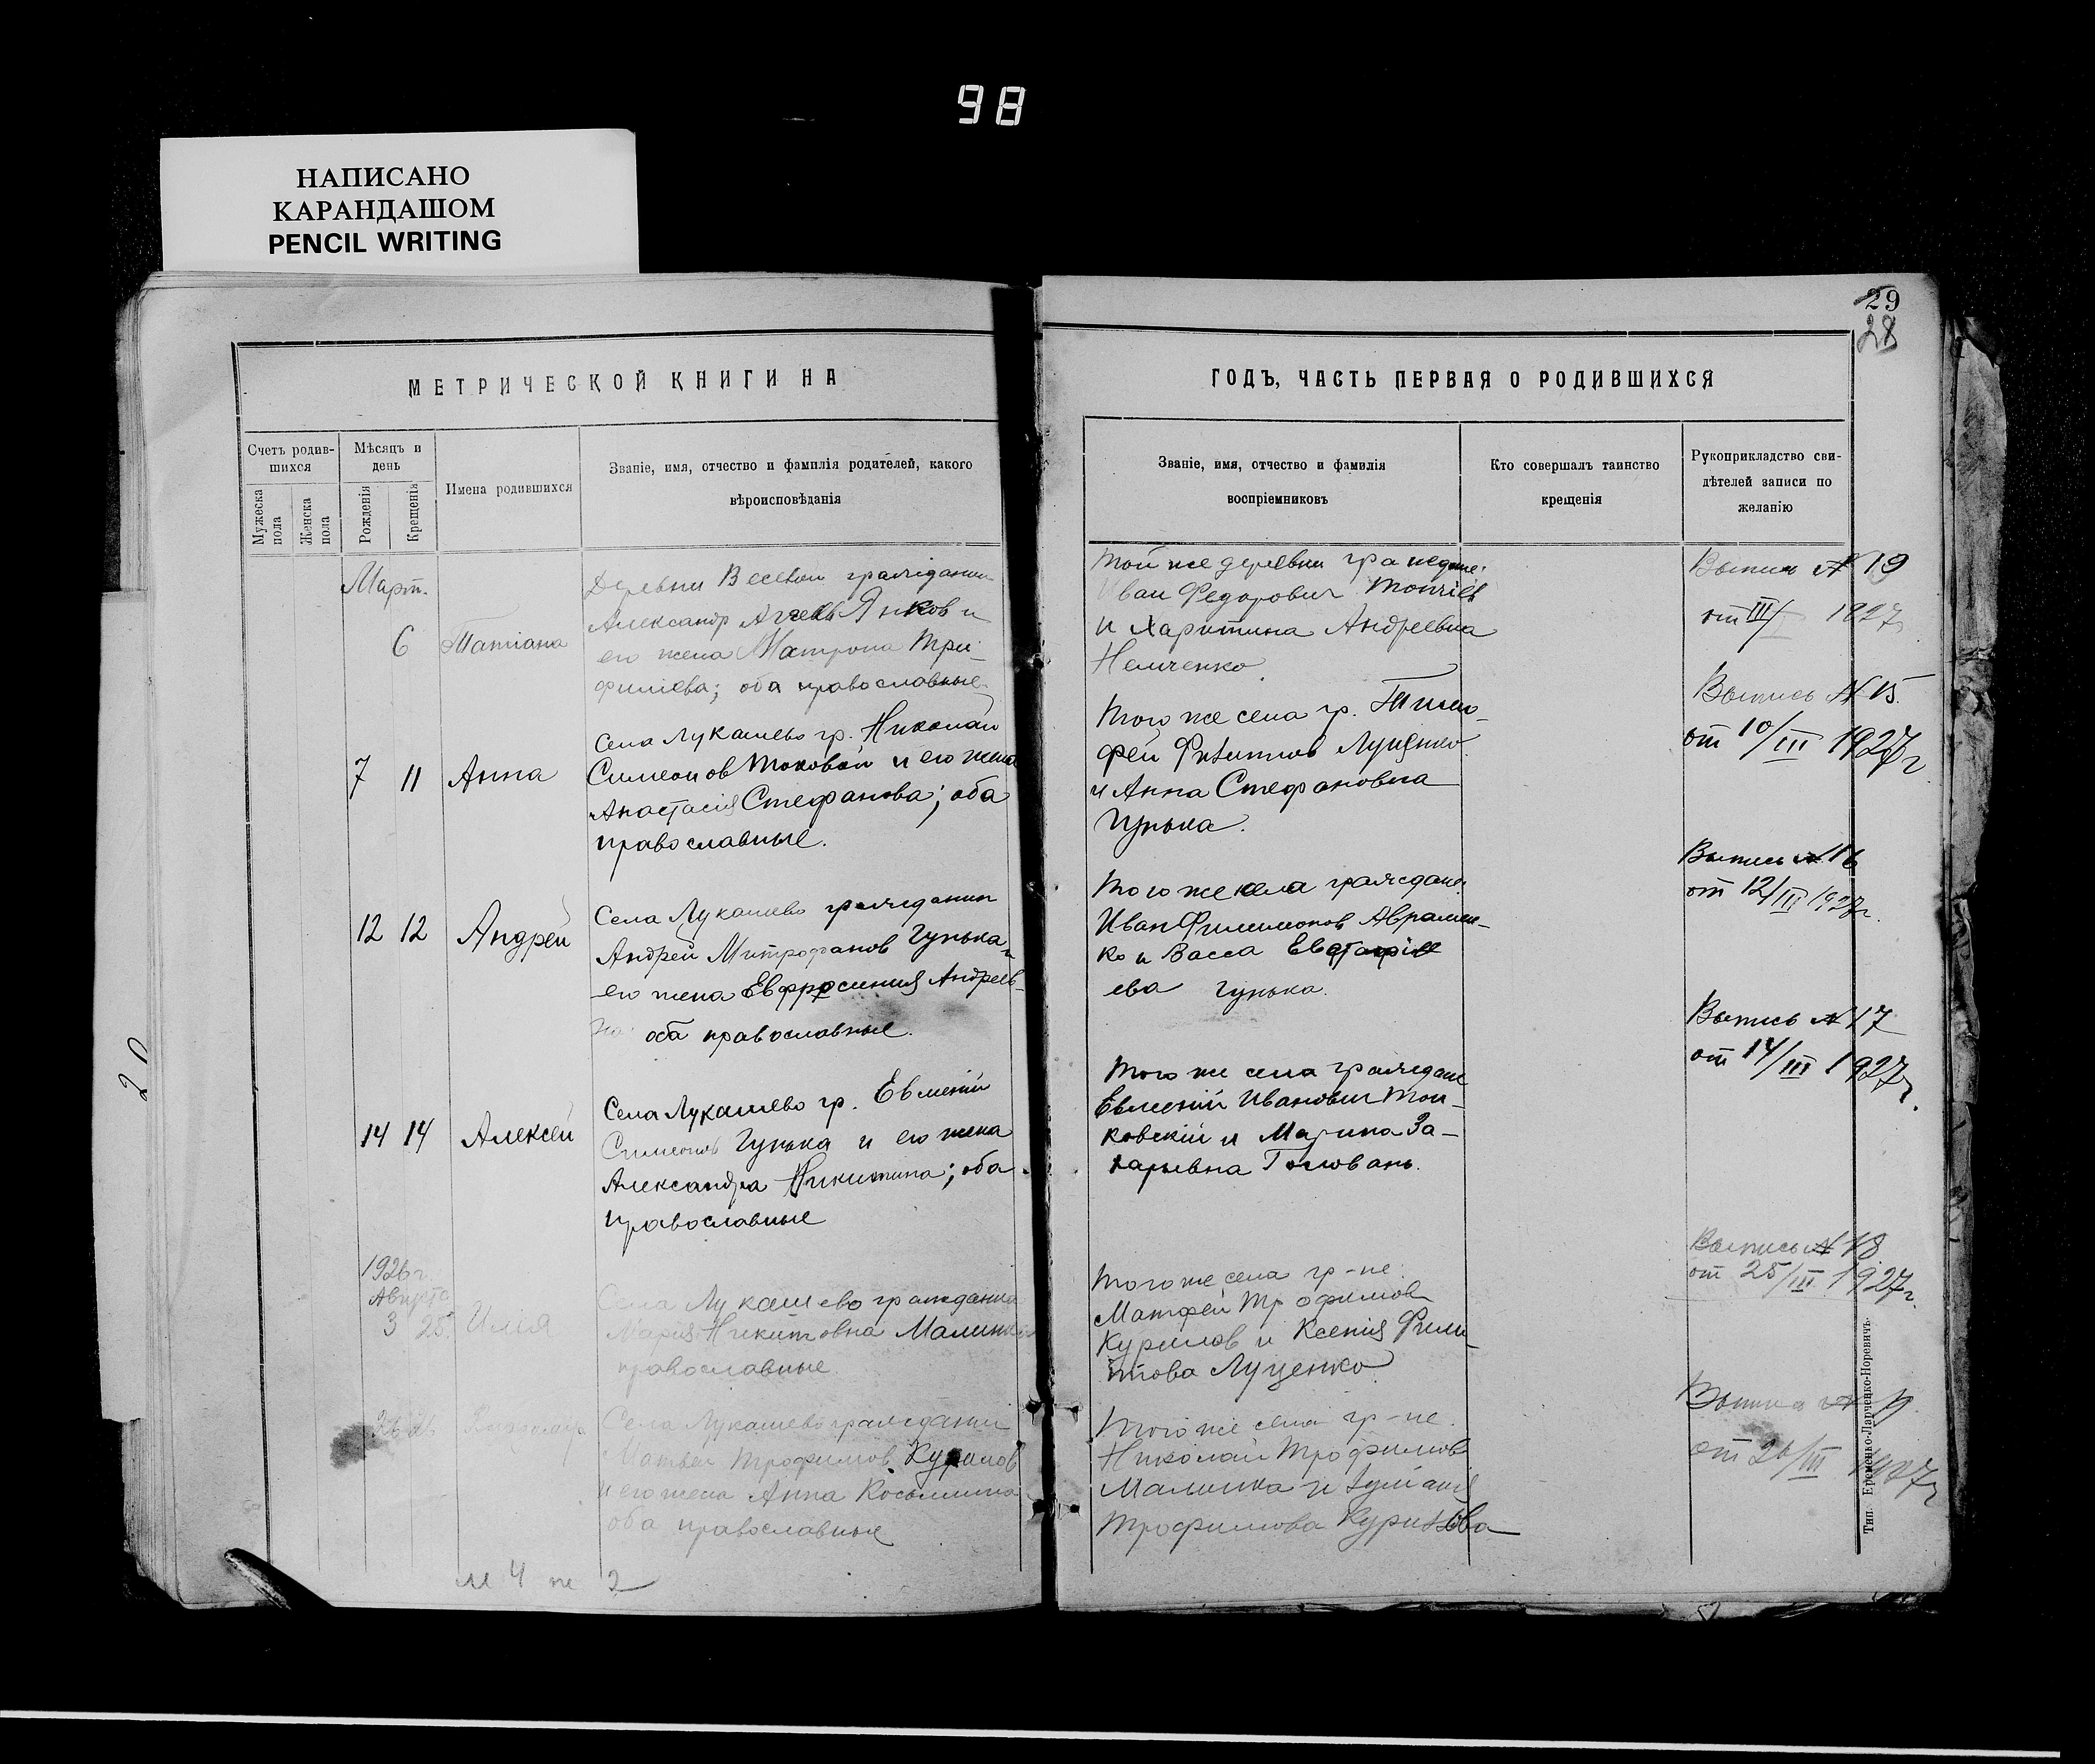 98
НАПИСАНО
КАРАНДАШОМ
PENCIL WRITING
29
28
МЕТРИЧЕСКОЙ КНИГИ НА
Счетъ родив-
шихся
Мѣсяцъ и
день
Мужеска
пола
Женска
пола
Рожденія
Крещенія
Имена родившихся
Званіе, имя, отчество и фамилія родителей, какого
вѣроисповѣданія
Март.
6 Татіана
Деревни Веселой граждани-
Александр Янков и
его жена Матрона Три-
филієва; оба православные
7 11 Анна
Села Лукашево гр. Николай
Симеонов Токовой и его жена
Анастасія Стефанова; оба
православные.
12 12 Андрей
Села Лукашево гражданин
Андрей Митрофанов Гунька и
его жена Евфросинія Андреев-
на оба православные.
14 14 Алексей
Села Лукашево гр. Евмений
Симеонов Гунька и его жена
Александра Никитина; оба
православные
1926 г.
Августа
3 25. Илия
Села Лукашево гражданка
Мария Никитовна Малинка
православные
26 26 Владимир
Села Лукашево гражданин
Матвей Трофимов Курилов
и его жена Анна Косьмина
оба православные
м 4 ж 2
20
ГОДЪ, ЧАСТЬ ПЕРВАЯ О РОДИВШИХСЯ
Званіе, имя, отчество и фамилія
воспріемниковъ
Кто совершалъ таинство
крещенія
Рукоприкладство сви-
дѣтелей записи по
желанію
Той же деревни граждане:
Иван Федорович
и Харитина Андреевна
Немченко
Того же села гр. Тимо-
фей Филиппов Луценко
и Анна Стефановна
Гунька.
Того же села граждане:
Иван Филимонов Авramен-
ко и Васса Евстафіе
ева Гунька.
Того же села граждане
Евмений Иванович Тон-
ковскій и Марина За-
харьевна Головань.
Того же села гр-не:
Матфей Трофимов
Курилов и Ксенія Фили-
ппова Луценко
Того же села гр-не.
Николай Трофимов
Малинка и Іуліанія
Трофимова Курилова
Выпись № 19
от III/ 1927
Выпись № 15
от 10/III 1927 г.
Выпись № 16
от 12/III 1927 г.
Выпись № 17
от 14/III 1927 г.
Выпись № 18
от 25/III 1927 г.
Выпись №
от 26/III 1927 г.
Тип. Еременко-Ларченко-Норевичъ.